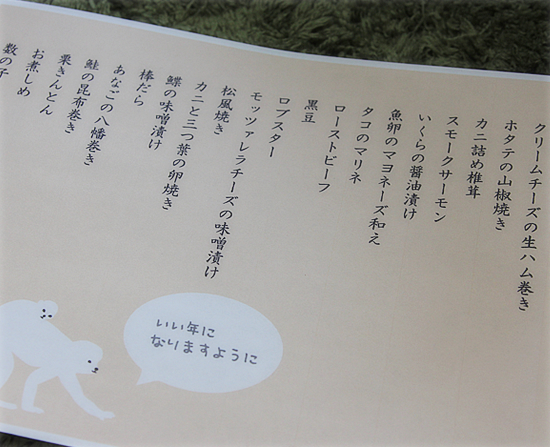 クリームチーズの生ハム巻き
ホタテの山椒焼き
カニ詰め椎茸
スモークサーモン
いくらの醤油漬け
魚卵のマヨネーズ和え
タコのマリネ
ローストビーフ
黒豆
ロブスター
モッツァレラチーズの味噌漬け
松風焼き
カニと三つ葉の卵焼き
鰈の味噌漬け
棒だら
あなごの八幡巻き
鮭の昆布巻き
栗きんとん
お煮しめ
数の子
いい年に
なりますように